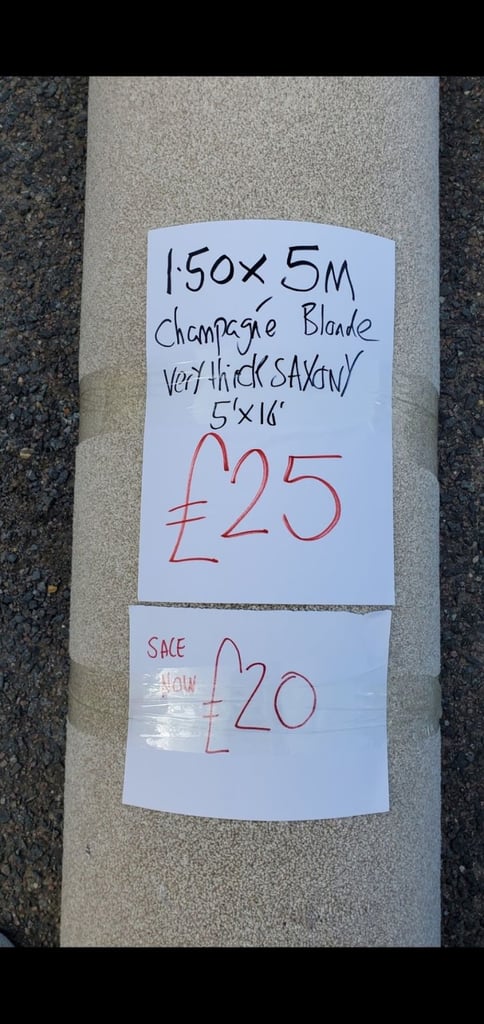 1.50 x 5M
Champagne Blonde
Very thick SAXONY
5' x 16'
£25
SALE
NOW
£20